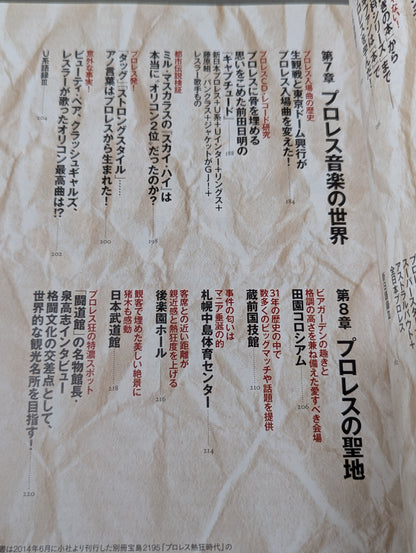 ない！
き の本」から
で
第7章 プロレス音楽の世界
プロレス入場曲の歴史
生観戦と東京ドーム興行が
プロレス入場曲を変えた！
184
プロレスCD・レコード研究
プロレスに骨を埋める
思いをこめた前田日明の
「キャプチュード」
188
新日本プロレス＋U系＋Uインター＋リングス＋
藤原組、パンクラス＋ジャケットがGJ！＋
レスラー歌手もの
都市伝説検証
ミル・マスカラスの「スカイ・ハイ」は
本当に“オリコン2位”だったのか？
198
プロレス発！
「タッグ」「ストロングスタイル」……
アノ言葉はプロレスから生まれた！
200
意外な事実！
ビューティ・ペア、クラッシュギャルズ、
レスラーが歌ったオリコン最高曲は!?
202
U系語録Ⅲ
204
第8章 プロレスの聖地
ビアガーデンの趣きと
格調の高さを兼ね備えた愛すべき会場
田園コロシアム
206
31年の歴史の中で
数多くのビッグマッチや話題を提供
蔵前国技館
210
事件の匂いは
マニア垂涎の的
札幌中島体育センター
214
客席との近い距離が
親近感と熱狂度を上げる
後楽園ホール
216
観客で埋めた美しい絶景に
猪木も感動
日本武道館
218
プロレス狂の特濃スポット
「闘道館」の名物館長・
泉高志インタビュー
格闘文化の交差点として、
世界的な観光名所を目指す！
220
書は2014年6月に小社より刊行した別冊宝島2195『プロレス熱狂時代』の